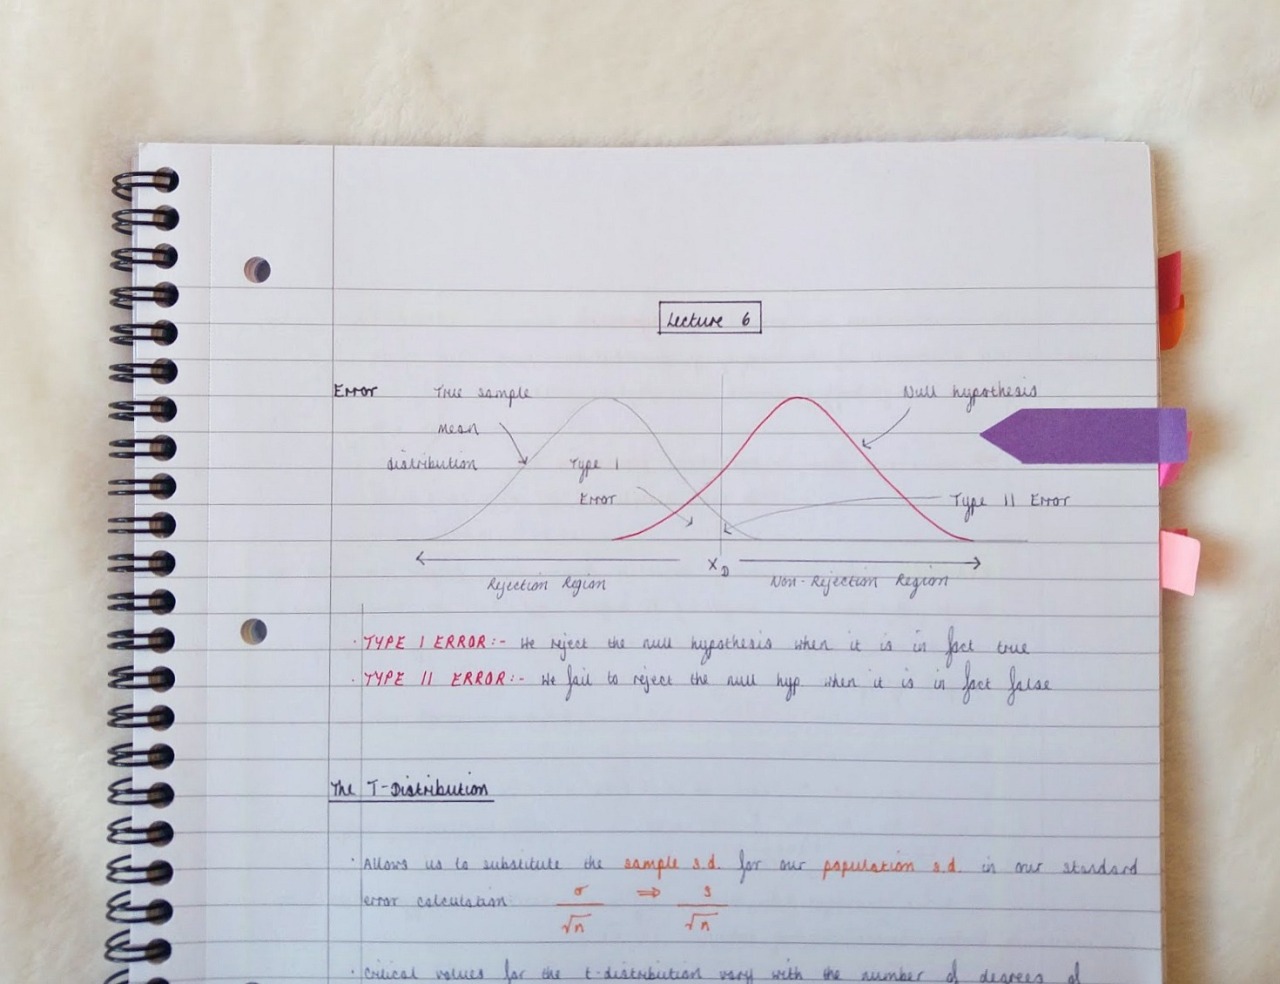 Lecture 6
Error
True sample
mean
distribution
Null hypothesis
Type I
Error
Type II Error
X_D
Rejection Region
Non-Rejection Region
· TYPE I ERROR:- We reject the null hypothesis when it is in fact true
· TYPE II ERROR:- We fail to reject the null hyp when it is in fact false
The T-Distribution
· Allows us to substitute the sample s.d. for our population s.d. in our standard
error calculation σ/√n ⇒ s/√n
· Critical values for the t-distribution vary with the number of degrees of